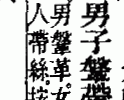 男子鞶帶
男鞶革女
人帶絲